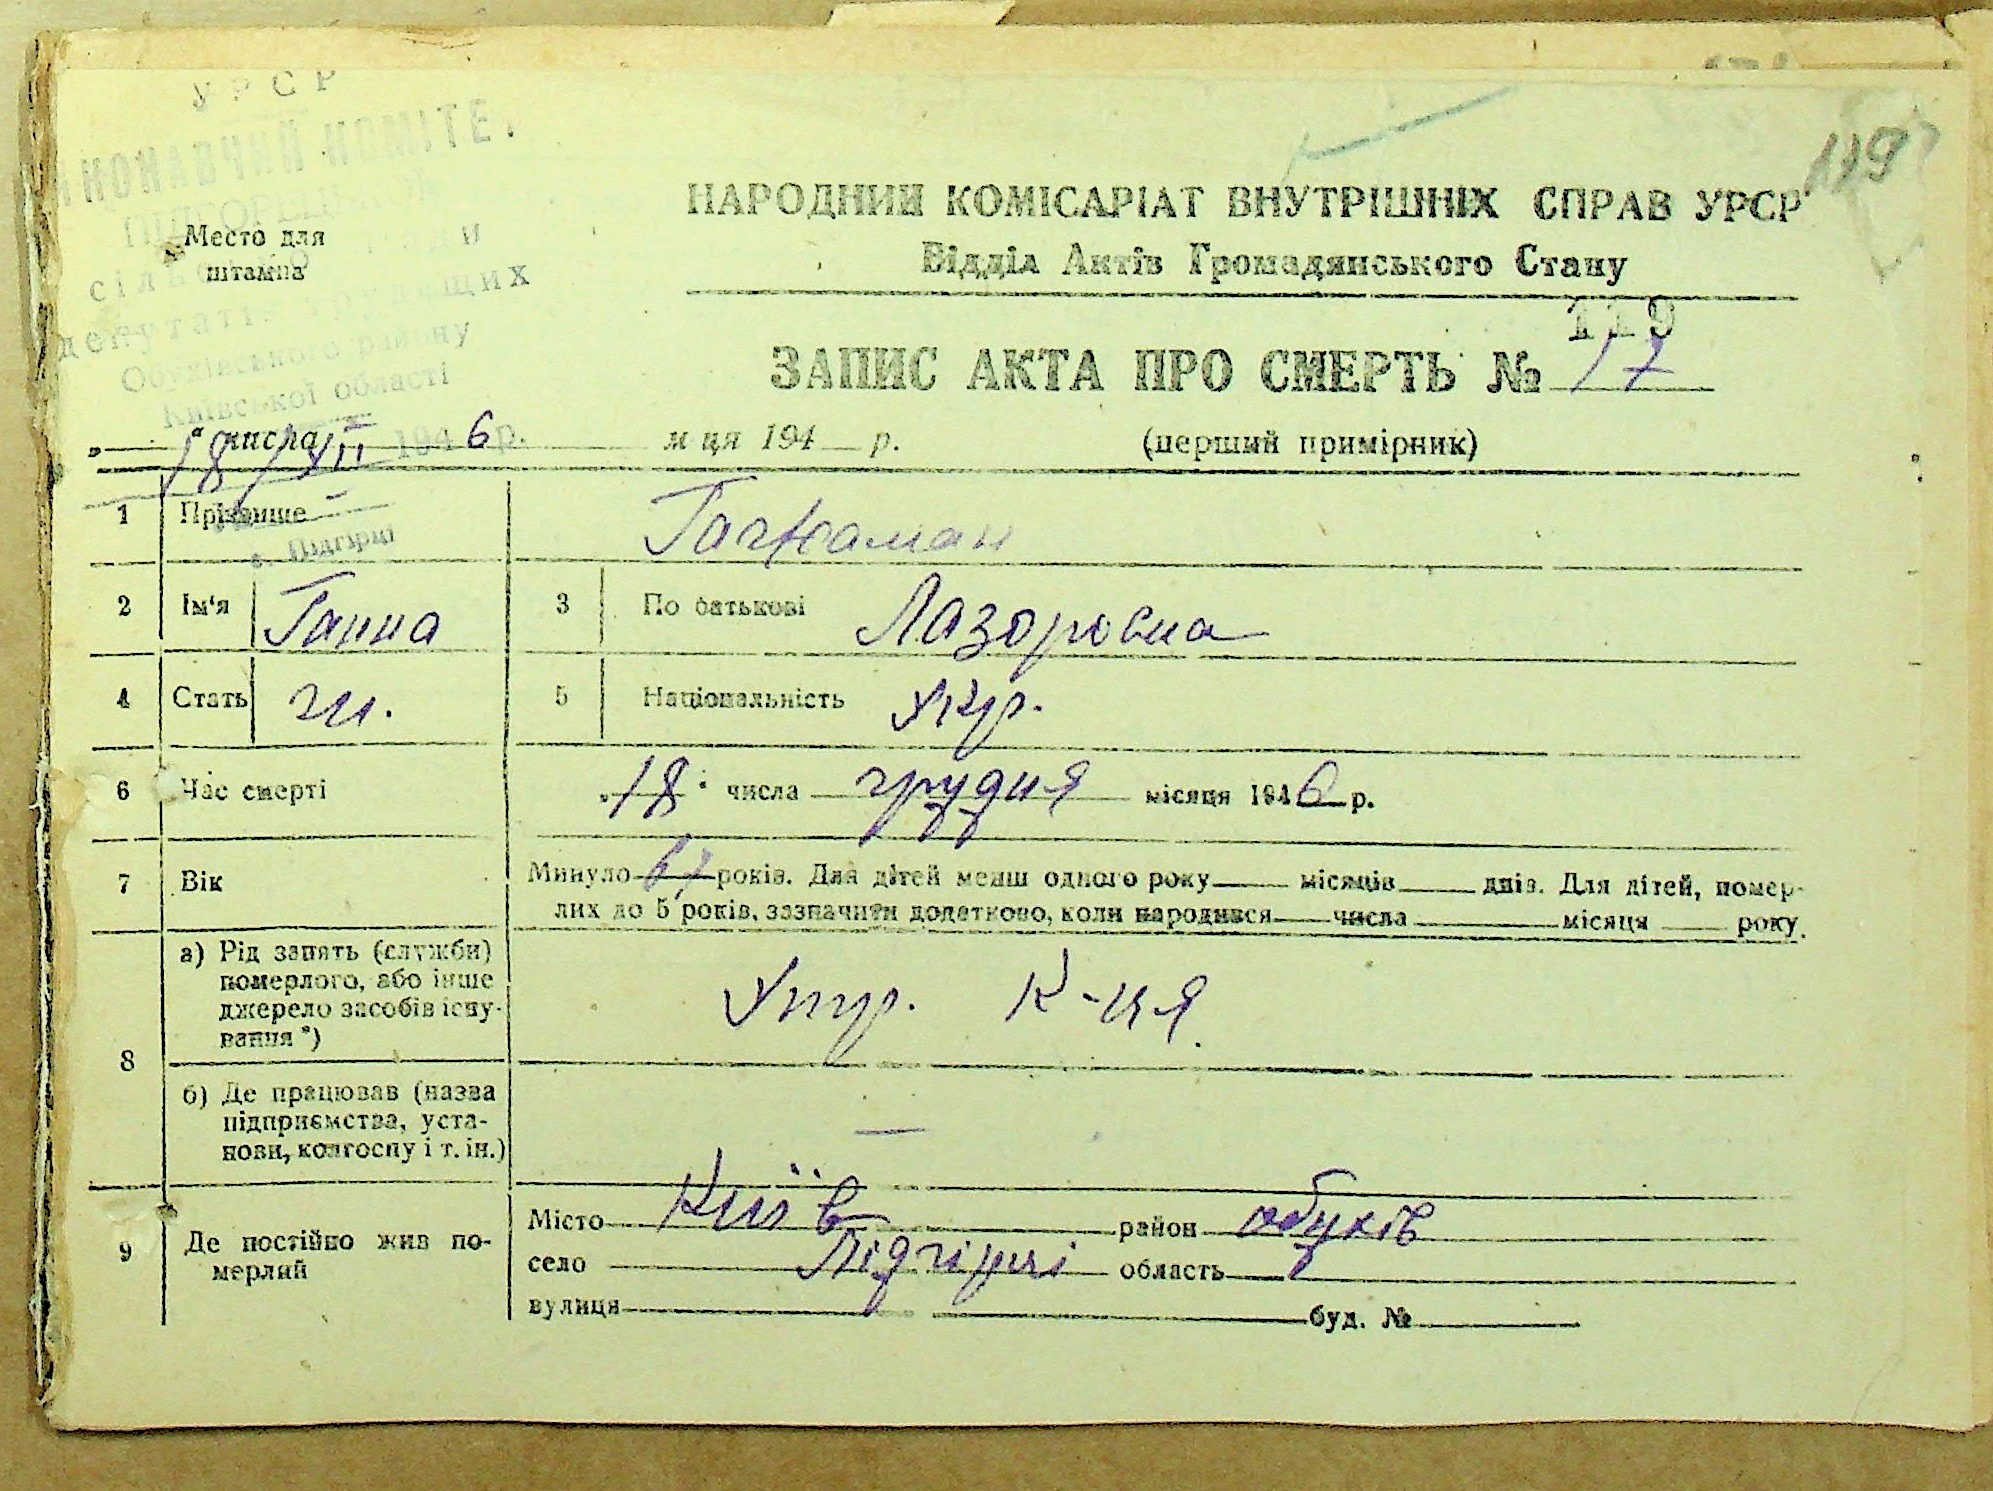 УРСР
ВИКОНАВЧИЙ КОМІТЕТ
Место для
штампа
депутатів трудящих
Обухівського району
Київської області
18/XII 1946 р.
с. Підгірці
119
НАРОДНИЙ КОМІСАРІАТ ВНУТРІШНІХ СПРАВ УРСР
Відділ Актів Громадянського Стану
119
ЗАПИС АКТА ПРО СМЕРТЬ № 17
„ “ числа м ця 194 р. (перший примірник)
1 Прізвище
2 Ім'я Ганна 3 По батькові Лазоровна
4 Стать ж. 5 Національність Укр.
6 Час смерті „18“ числа грудня місяця 1946 р.
7 Вік Минуло років. Для дітей менш одного року місяців днів. Для дітей, помер-
лих до 5 років, зазначити додатково, коли народився числа місяця року.
8 а) Рід занять (служби)
померлого, або інше
джерело засобів існу-
вання *)
К-ця
б) Де працював (назва
підприємства, уста-
нови, колгоспу і т. ін.) —
9 Де постійно жив по-
мерлий
Місто Київ район обухів
село Підгірці область
вулиця буд. №